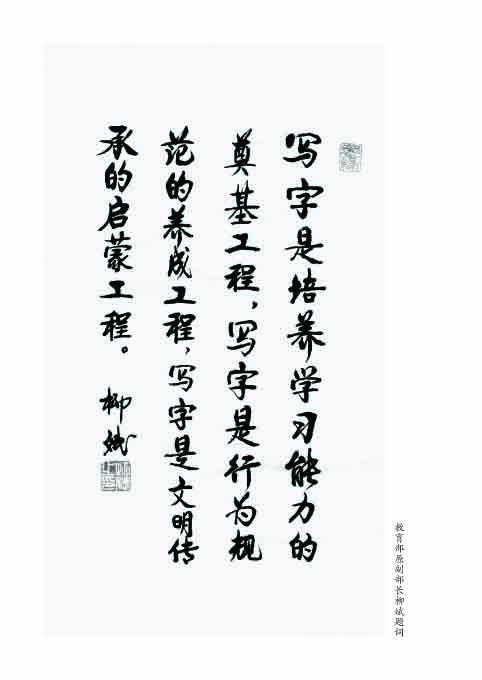 写字是培养学习能力的
奠基工程，写字是行为规
范的养成工程，写字是文明传
承的启蒙工程。
柳斌
教育部原副部长柳斌题词